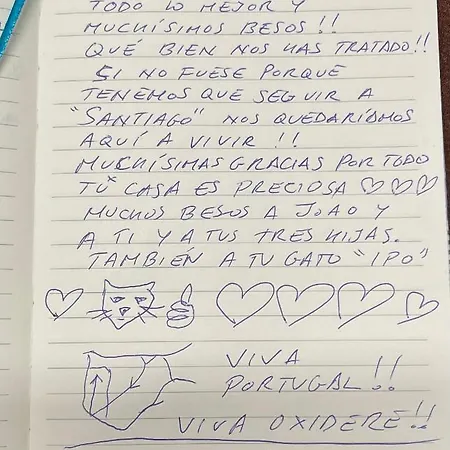 TODO LO MEJOR Y
MUCHÍSIMOS BESOS !!
QUÉ BIEN NOS HAS TRATADO!!
SI NO FUESE PORQUE
TENEMOS QUE SEGUIR A
"SANTIAGO" NOS QUEDARÍAMOS
AQUÍ A VIVIR !!
MUCHÍSIMAS GRACIAS POR TODO
TU CASA ES PRECIOSA ♡♡♡
MUCHOS BESOS A JOAO Y
A TI Y A TUS TRES HIJAS.
TAMBIÉN A TU GATO "IPO"
VIVA
PORTUGAL!!
VIVA OXIDERÉ!!